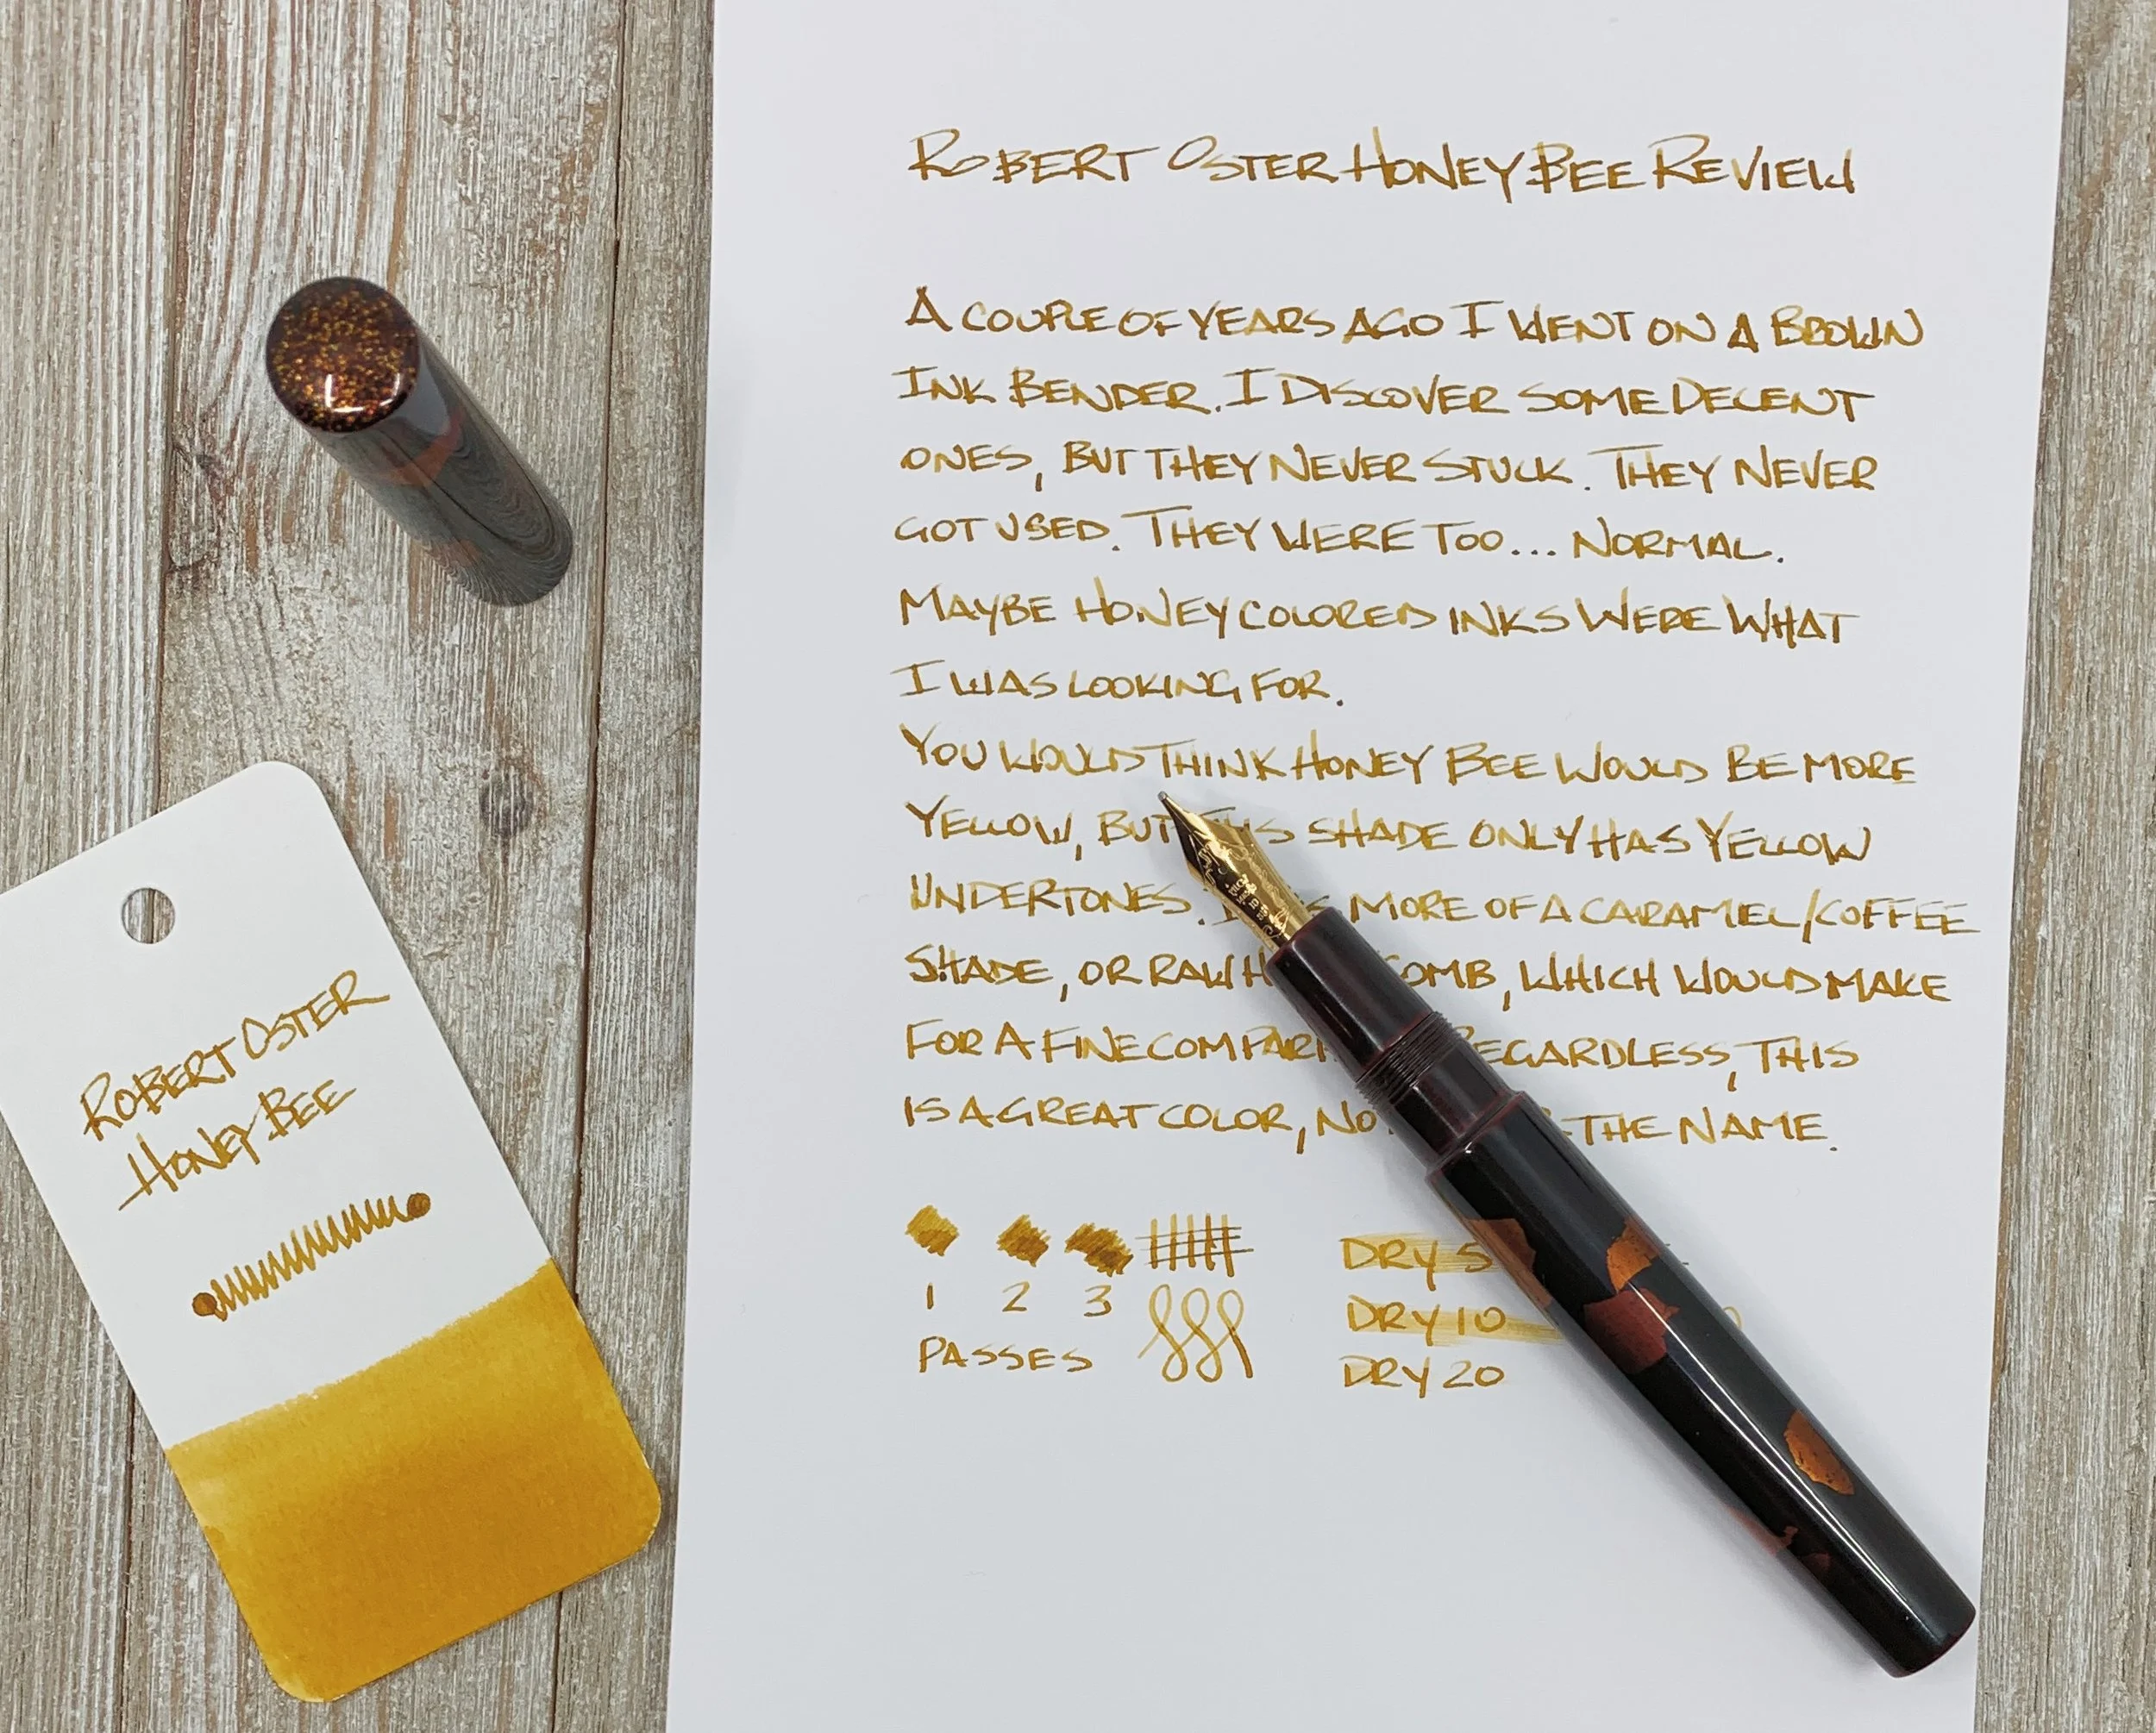 ROBERT OSTER HONEY BEE REVIEW
A COUPLE OF YEARS AGO I WENT ON A BROWN
INK BENDER. I DISCOVER SOME DECENT
ONES, BUT THEY NEVER STUCK. THEY NEVER
GOT USED. THEY WERE TOO... NORMAL.
MAYBE HONEY COLORED INKS WERE WHAT
I WAS LOOKING FOR.
YOU WOULD THINK HONEY BEE WOULD BE MORE
YELLOW, BUT THIS SHADE ONLY HAS YELLOW
UNDERTONES. MORE OF A CARAMEL/COFFEE
SHADE, OR RAW WHICH WOULD MAKE
FOR A FINE REGARDLESS, THIS
IS A GREAT COLOR, THE NAME.
1 2 3
PASSES
DRY 5
DRY 10
DRY 20
ROBERT OSTER
HONEY BEE